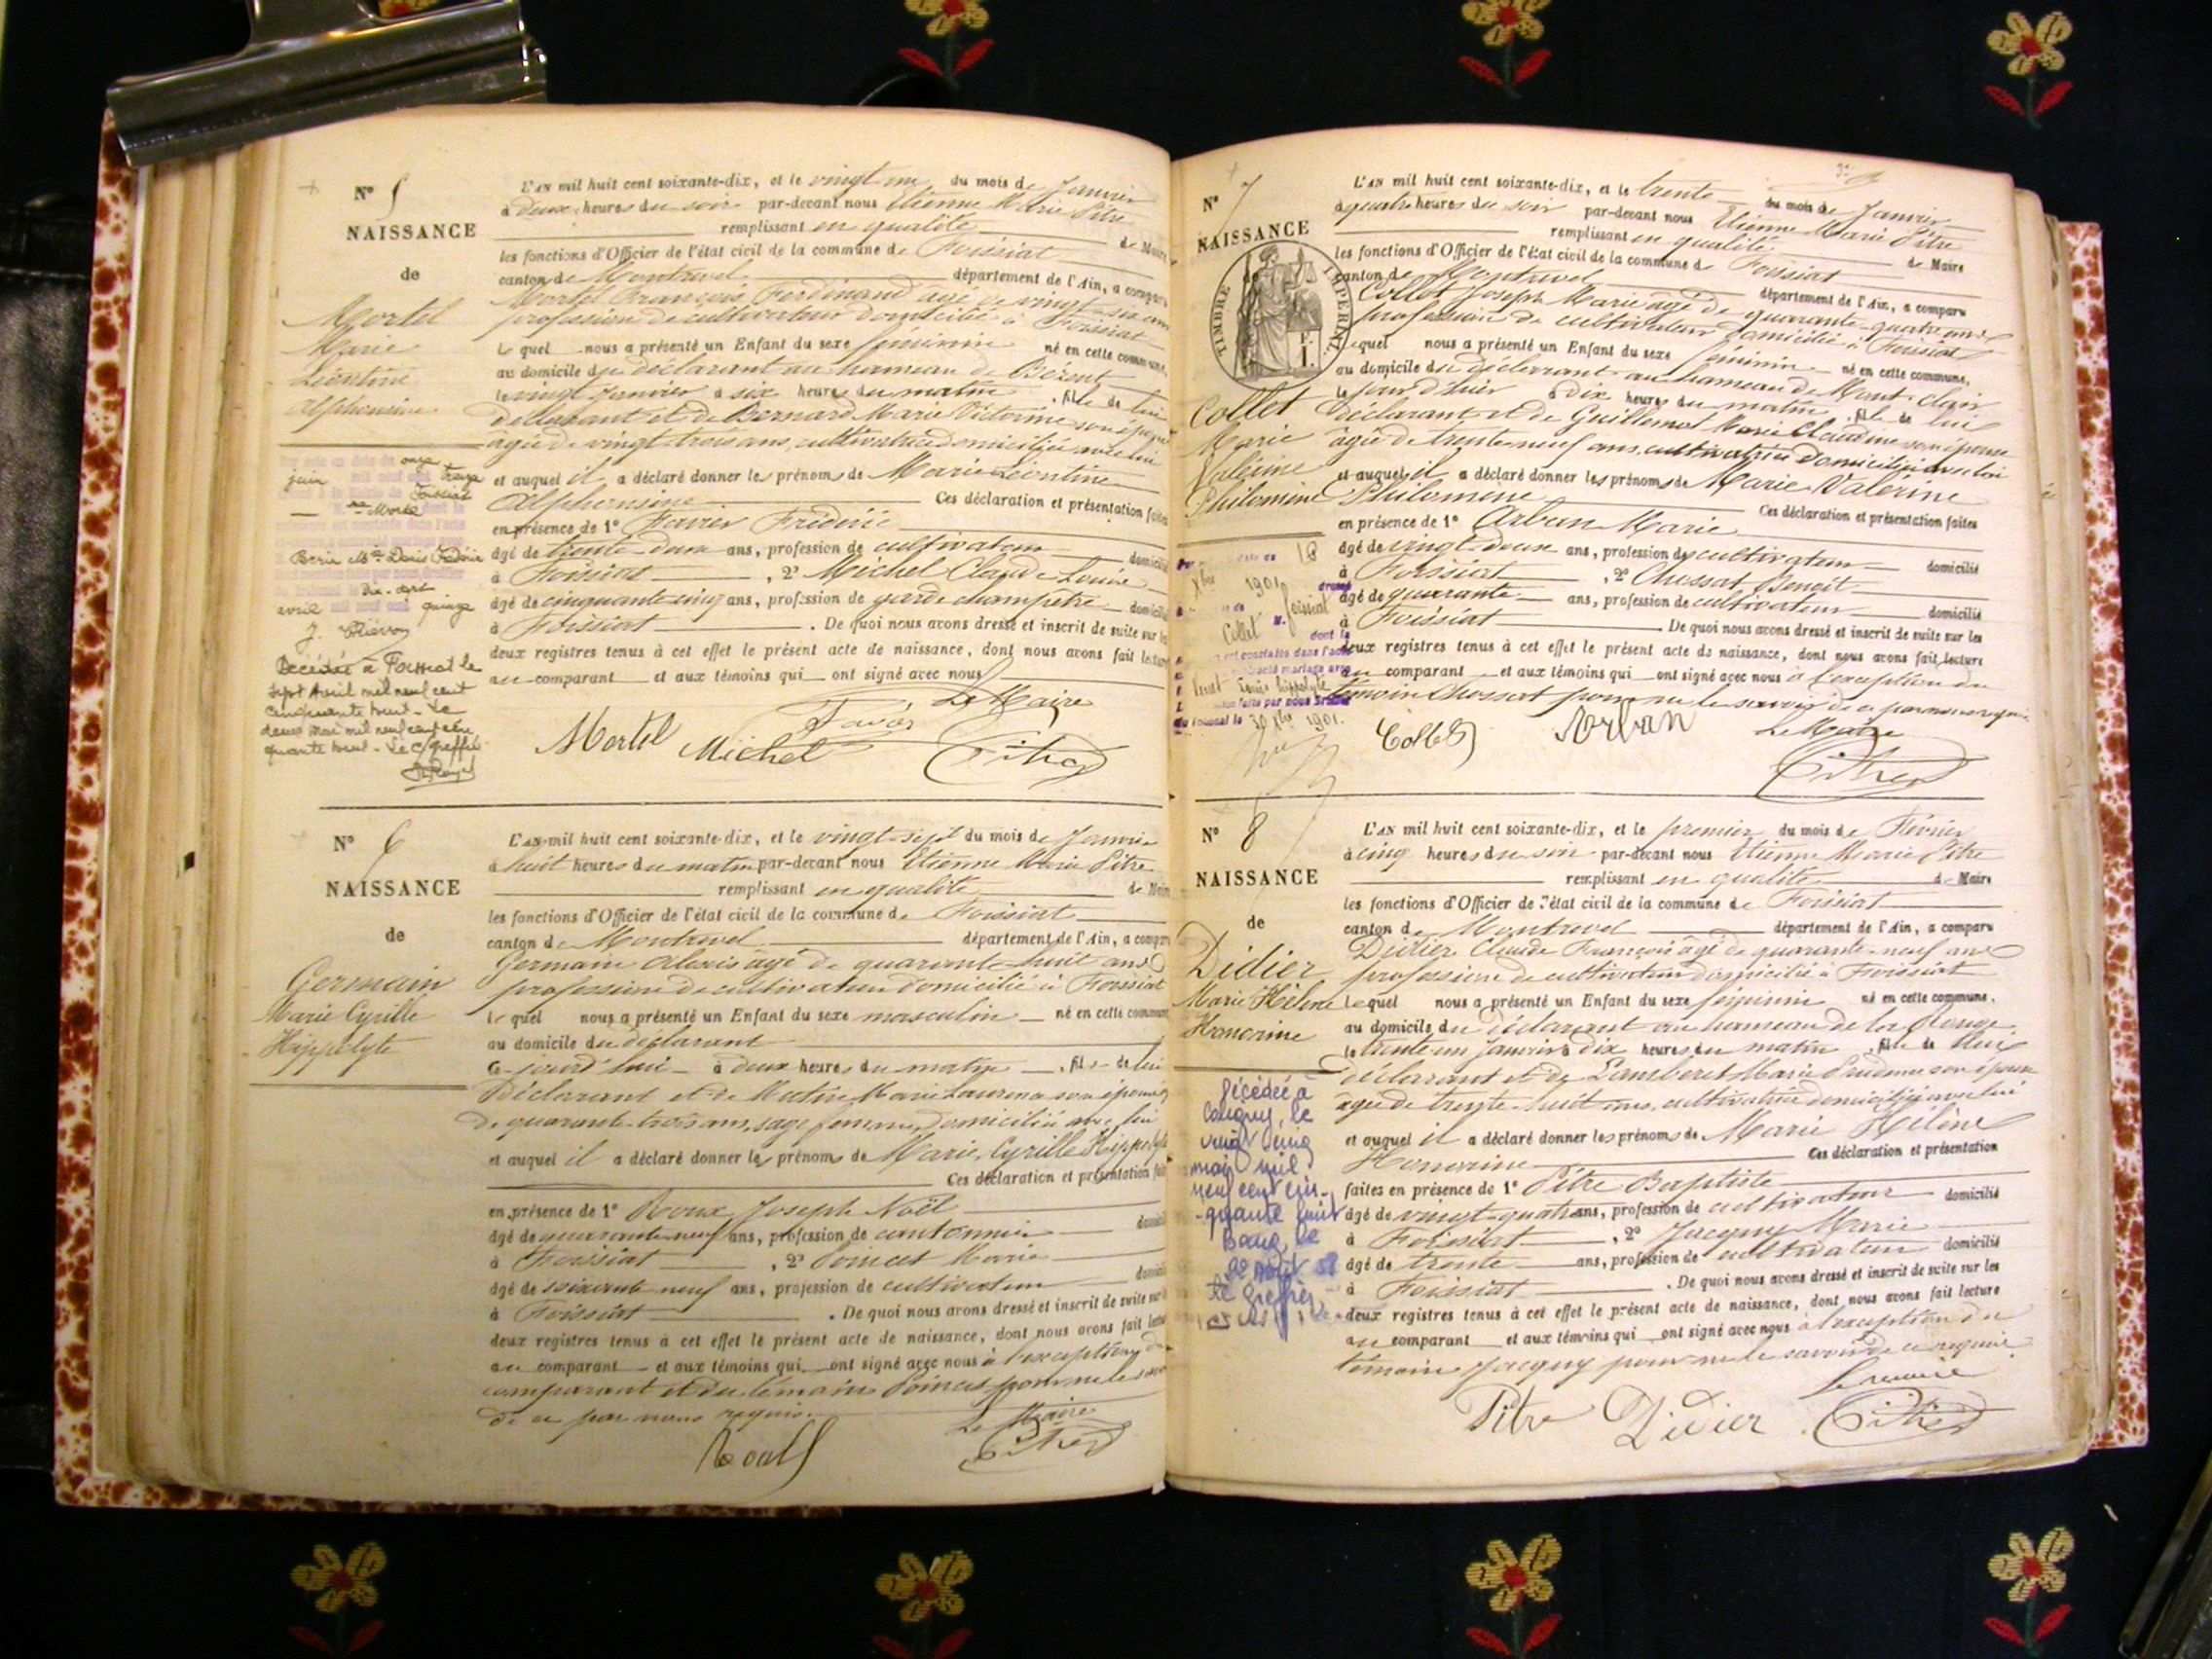 N° 5
NAISSANCE
de
Mortel
Marie
Léontine
Alphonsine
L'AN mil huit cent soixante-dix, et le vingt un du mois de Janvier
à deux heures du soir par-devant nous Etienne Marie Pitre
remplissant en qualité de Maire
les fonctions d'Officier de l'état civil de la commune de Foissiat
canton de Montrevel département de l'Ain, a comparu
Mortel François Ferdinand âgé de vingt six ans
profession de cultivateur domicilié à Foissiat
lequel nous a présenté un Enfant du sexe féminin né en cette commune,
au domicile du déclarant au hameau de Bezent
le vingt janvier à six heures du matin, fille de lui
déclarant et de Bernard Marie Victorine son épouse
âgée de vingt trois ans, cultivatrice domiciliée avec lui
et auquel il a déclaré donner les prénoms de Marie Léontine
Alphonsine Ces déclaration et présentation faites
en présence de 1° Favier Frédéric
âgé de trente deux ans, profession de cultivateur domicilié
à Foissiat, 2° Michel Claude Louis
âgé de cinquante cinq ans, profession de garde champêtre domicilié
à Foissiat. De quoi nous avons dressé et inscrit de suite sur les
deux registres tenus à cet effet le présent acte de naissance, dont nous avons fait lecture
au comparant et aux témoins qui ont signé avec nous
Le Maire
Mortel Michel Favier Pitre
onze
juin treize
Foissiat
Mortel
Denis Frédéric
dix-sept
avril quinze
Décédée à Foissiat le
sept avril mil neuf cent
cinquante huit - Le
deux mai mil neuf cent cin
quante huit - Le c/greffier
N° 6
NAISSANCE
de
Germain
Marie Cyrille
Hippolyte
L'AN mil huit cent soixante-dix, et le vingt-sept du mois de Janvier
à huit heures du matin par-devant nous Etienne Marie Pitre
remplissant en qualité de Maire
les fonctions d'Officier de l'état civil de la commune de Foissiat
canton de Montrevel département de l'Ain, a comparu
Germain Alexis âgé de quarante huit ans
profession de cultivateur domicilié à Foissiat
lequel nous a présenté un Enfant du sexe masculin né en cette commune
au domicile du déclarant
ce jourd'hui à deux heures du matin, fils de lui
déclarant et de Marie Laurence son épouse
de quarante-trois ans, sage femme, domiciliée avec lui
et auquel il a déclaré donner les prénoms de Marie, Cyrille Hippolyte
Ces déclaration et présentation faites
en présence de 1° Roux Joseph Noël
âgé de quarante neuf ans, profession de cantonnier domicilié
à Foissiat, 2° Poincet Marie
âgé de soixante neuf ans, profession de cultivateur domicilié
à Foissiat. De quoi nous avons dressé et inscrit de suite sur les
deux registres tenus à cet effet le présent acte de naissance, dont nous avons fait lecture
au comparant et aux témoins qui ont signé avec nous à l'exception du
comparant et du témoin Poincet pour ne le savoir
de ce par nous requis.
Le Maire
Roux Pitre
N° 7
NAISSANCE
TIMBRE IMPERIAL
Collet
Marie
Valérine
Philomène
L'AN mil huit cent soixante-dix, et le trente du mois de Janvier
à quatre heures du soir par-devant nous Etienne Marie Pitre
remplissant en qualité de Maire
les fonctions d'Officier de l'état civil de la commune de Foissiat
canton de Montrevel département de l'Ain, a comparu
Collet Joseph Marie âgé de quarante-quatre ans
profession de cultivateur domicilié à Foissiat
lequel nous a présenté un Enfant du sexe féminin né en cette commune,
au domicile du déclarant au hameau de Mont-clair
le jour d'hier à dix heures du matin, fille de lui
déclarant et de Guillemot Marie Claudine son épouse
âgée de trente-neuf ans, cultivatrice domiciliée avec lui
et auquel il a déclaré donner les prénoms de Marie Valérine
Philomène Ces déclaration et présentation faites
en présence de 1° Arban Marie
âgé de vingt-deux ans, profession de cultivateur domicilié
à Foissiat, 2° Chossat Benoit
âgé de quarante ans, profession de cultivateur domicilié
à Foissiat. De quoi nous avons dressé et inscrit de suite sur les
deux registres tenus à cet effet le présent acte de naissance, dont nous avons fait lecture
au comparant et aux témoins qui ont signé avec nous à l'exception du
témoin Chossat pour ne le savoir de ce par nous requis
Le Maire
Collet Arban Pitre
18
Xbre 1901
Foissiat
Collet
dont le
Louis hippolyte
30 Xbre 1901.
N° 8
NAISSANCE
de
Didier
Marie Hélène
Honorine
L'AN mil huit cent soixante-dix, et le premier du mois de Février
à cinq heures du soir par-devant nous Etienne Marie Pitre
remplissant en qualité de Maire
les fonctions d'Officier de l'état civil de la commune de Foissiat
canton de Montrevel département de l'Ain, a comparu
Didier Claude François âgé de quarante-neuf ans
profession de cultivateur domicilié à Foissiat
lequel nous a présenté un Enfant du sexe féminin né en cette commune,
au domicile du déclarant au hameau de la
le trente un janvier à dix heures du matin, fille de lui
déclarant et de Lamberet Marie Prudence son épouse
âgée de trente-huit ans, cultivatrice domiciliée avec lui
et auquel il a déclaré donner les prénoms de Marie Hélène
Honorine Ces déclaration et présentation
faites en présence de 1° Pitre Baptiste
âgé de vingt-quatre ans, profession de cultivateur domicilié
à Foissiat, 2° Jacquy Marie
âgé de trente ans, profession de cultivateur domicilié
à Foissiat. De quoi nous avons dressé et inscrit de suite sur les
deux registres tenus à cet effet le présent acte de naissance, dont nous avons fait lecture
au comparant et aux témoins qui ont signé avec nous à l'exception du
témoin Jacquy pour ne le savoir de ce requis
Le maire
Pitre Didier Pitre
Décédée à
le
vingt cinq
mars mil
neuf cent cin-
-quante huit
Bourg, le
Le Greffier